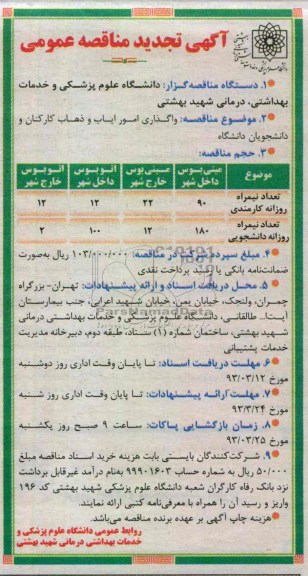 آگهی تجدید مناقصه عمومی
۱. دستگاه مناقصه‌گزار: دانشگاه علوم پزشکی و خدمات
بهداشتی، درمانی شهید بهشتی
۲. موضوع مناقصه: واگذاری امور ایاب و ذهاب کارکنان و
دانشجویان دانشگاه
۳. حجم مناقصه:
موضوع مینی‌بوس داخل شهر مینی‌بوس خارج شهر اتوبوس داخل شهر اتوبوس خارج شهر
تعداد نیمراه روزانه کارمندی ۹۰ ۲۲ ۱۲ ۱۲
تعداد نیمراه روزانه دانشجویی ۱۸۰ ۱۲ ۱۰۰ ۲
۴. مبلغ سپرده شرکت در مناقصه: ۱۰۳/۰۰۰/۰۰۰ ریال به‌صورت
ضمانت‌نامه بانکی یا رسید پرداخت نقدی
۵. محل دریافت اسناد و ارائه پیشنهادات: تهران- بزرگراه
چمران، ولنجک، خیابان یمن، خیابان شهید اعرابی، جنب بیمارستان
آیت‌ا... طالقانی، دانشگاه علوم پزشکی و خدمات بهداشتی درمانی
شهید بهشتی، ساختمان شماره (۱) ستاد، طبقه دوم، دبیرخانه مدیریت
خدمات پشتیبانی
۶. مهلت دریافت اسناد: تا پایان وقت اداری روز دوشنبه
مورخ ۹۳/۰۳/۱۲
۷. مهلت ارائه پیشنهادات: تا پایان وقت اداری روز شنبه
مورخ ۹۳/۳/۲۴
۸. زمان بازگشایی پاکات: ساعت ۹ صبح روز یکشنبه
مورخ ۹۳/۰۳/۲۵
۹. شرکت‌کنندگان بایستی بابت هزینه خرید اسناد مناقصه مبلغ
۵۰/۰۰۰ ریال به شماره حساب ۹۹۹۰۱۶۰۳ به‌نام درآمد غیرقابل برداشت
نزد بانک رفاه کارگران شعبه دانشگاه علوم پزشکی شهید بهشتی کد ۱۹۶
واریز و رسید آن را همراه با معرفی‌نامه کتبی ارائه نمایند.
هزینه چاپ آگهی بر عهده برنده مناقصه می‌باشد.
روابط عمومی دانشگاه علوم پزشکی و
خدمات بهداشتی درمانی شهید بهشتی